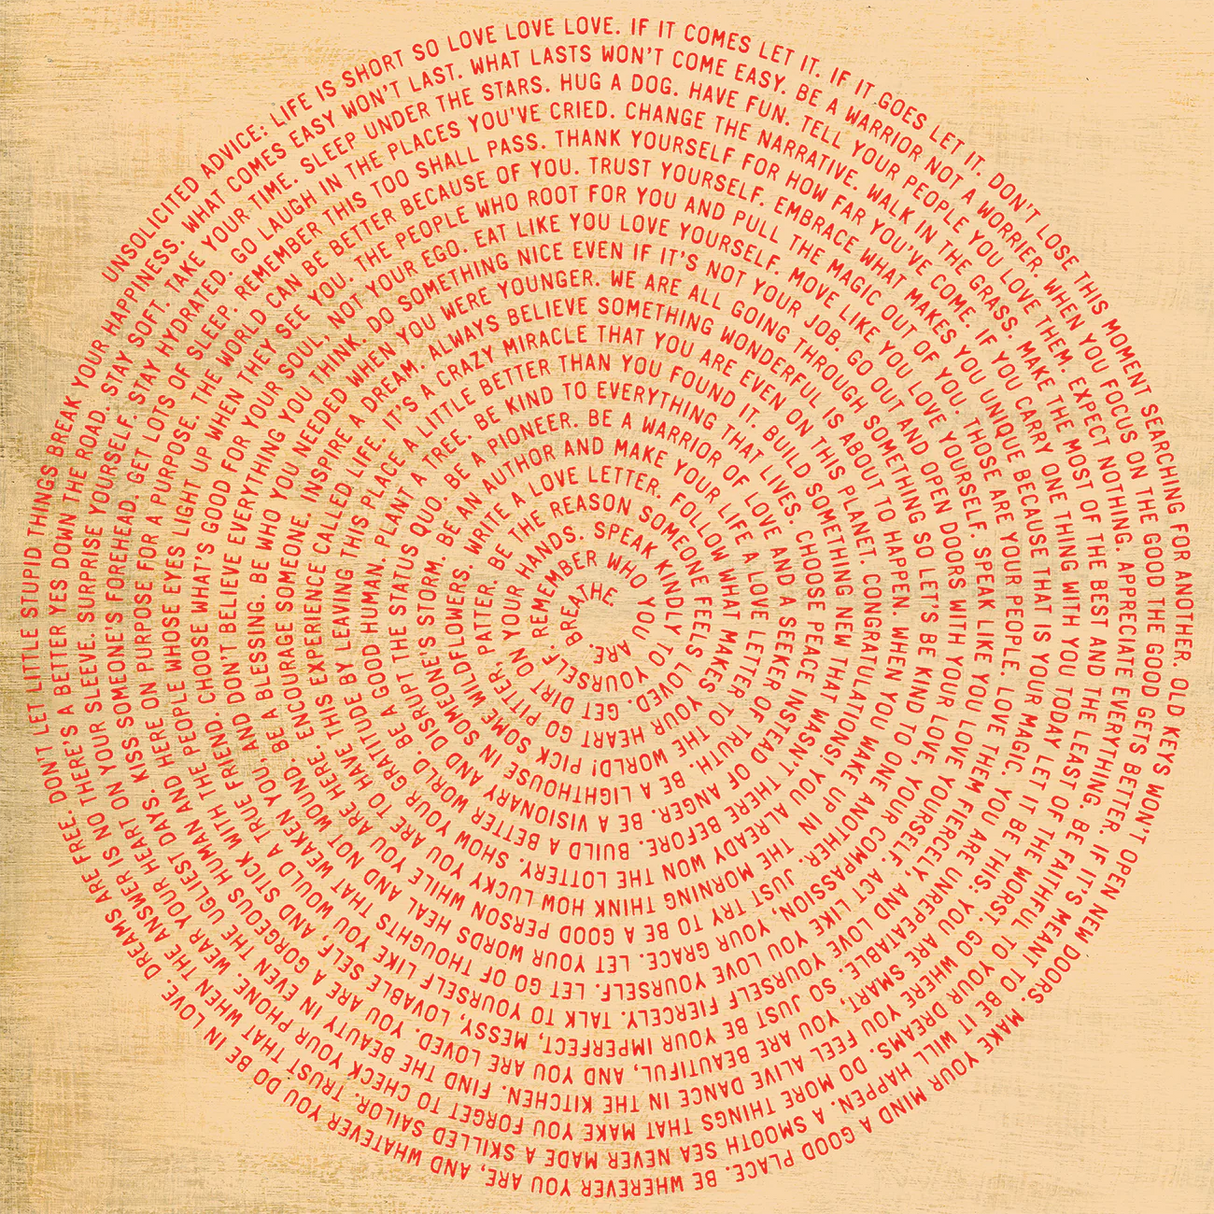 UNSOLICITED ADVICE: LIFE IS SHORT SO LOVE LOVE LOVE. IF IT COMES LET IT. IF IT GOES LET IT. DON'T LOSE THIS MOMENT SEARCHING FOR ANOTHER. OLD KEYS WON'T OPEN NEW DOORS. MAKE YOUR MIND A GOOD PLACE. BE WHEREVER YOU ARE, AND WHATEVER YOU DO BE IN LOVE. DREAMS ARE FREE. DON'T LET LITTLE STUPID THINGS BREAK YOUR HAPPINESS. WHAT COMES EASY WON'T LAST. WHAT LASTS WON'T COME EASY. BE A WARRIOR NOT A WORRIER. WHEN YOU FOCUS ON THE GOOD THE GOOD GETS BETTER. IF IT'S MEANT TO BE IT WILL HAPPEN. A SMOOTH SEA NEVER MADE A SKILLED SAILOR. TRUST THAT WHEN THE ANSWER IS NO THERE'S A BETTER YES DOWN THE ROAD. STAY SOFT. TAKE YOUR TIME. SLEEP UNDER THE STARS. HUG A DOG. HAVE FUN. TELL YOUR PEOPLE YOU LOVE THEM. EXPECT NOTHING. APPRECIATE EVERYTHING. BE FAITHFUL TO YOUR DREAMS. DO MORE THINGS THAT MAKE YOU FORGET TO CHECK YOUR PHONE. WEAR YOUR HEART ON YOUR SLEEVE. SURPRISE YOURSELF. STAY HYDRATED. GO LAUGH IN THE PLACES YOU'VE CRIED. CHANGE THE NARRATIVE. WALK IN THE GRASS. MAKE THE MOST OF THE BEST AND THE LEAST OF THE WORST. GO WHERE YOU FEEL ALIVE DANCE IN THE KITCHEN. FIND THE BEAUTY IN EVEN THE UGLIEST DAYS. KISS SOMEONE'S FOREHEAD. GET LOTS OF SLEEP. REMEMBER THIS TOO SHALL PASS. THANK YOURSELF FOR HOW FAR YOU'VE COME. IF YOU CARRY ONE THING WITH YOU TODAY LET IT BE THIS: YOU ARE SMART, YOU ARE BEAUTIFUL, AND YOU ARE LOVED. YOU ARE A GORGEOUS HUMAN AND HERE ON PURPOSE FOR A PURPOSE. THE WORLD CAN BE BETTER BECAUSE OF YOU. TRUST YOURSELF. EMBRACE WHAT MAKES YOU UNIQUE BECAUSE THAT IS YOUR MAGIC. YOU ARE UNREPEATABLE. SO JUST BE YOUR IMPERFECT, MESSY, LOVABLE SELF, AND STICK WITH THE PEOPLE WHOSE EYES LIGHT UP WHEN THEY SEE YOU. THE PEOPLE WHO ROOT FOR YOU AND PULL THE MAGIC OUT OF YOU. THOSE ARE YOUR PEOPLE. LOVE THEM FIERCELY, AND LOVE YOURSELF FIERCELY. TALK TO YOURSELF LIKE YOU WOULD A TRUE FRIEND. CHOOSE WHAT'S GOOD FOR YOUR SOUL, NOT YOUR EGO. EAT LIKE YOU LOVE YOURSELF. MOVE LIKE YOU LOVE YOURSELF. SPEAK LIKE YOU LOVE YOURSELF, ACT LIKE YOU LOVE YOURSELF. LET GO OF THOUGHTS THAT WEAKEN YOU, AND DON'T BELIEVE EVERYTHING YOU THINK. DO SOMETHING NICE EVEN IF IT'S NOT YOUR JOB. GO OUT AND OPEN DOORS WITH YOUR LOVE, YOUR COMPASSION, YOUR GRACE. LET YOUR WORDS HEAL AND NOT WOUND. BE A BLESSING. BE WHO YOU NEEDED WHEN YOU WERE YOUNGER. WE ARE ALL GOING THROUGH SOMETHING SO LET'S BE KIND TO ONE ANOTHER. JUST TRY TO BE A GOOD PERSON WHILE YOU ARE HERE. ENCOURAGE SOMEONE. INSPIRE A DREAM. ALWAYS BELIEVE SOMETHING WONDERFUL IS ABOUT TO HAPPEN. WHEN YOU WAKE UP IN THE MORNING THINK HOW LUCKY YOU ARE TO HAVE THIS EXPERIENCE CALLED LIFE. IT'S A CRAZY MIRACLE THAT YOU ARE EVEN ON THIS PLANET. CONGRATULATIONS! YOU ALREADY WON THE LOTTERY. SHOW YOUR GRATITUDE BY LEAVING THIS PLACE A LITTLE BETTER THAN YOU FOUND IT. BUILD SOMETHING NEW THAT WASN'T THERE BEFORE. BUILD A BETTER WORLD. BE A GOOD HUMAN. PLANT A TREE. BE KIND TO EVERYTHING THAT LIVES. CHOOSE PEACE INSTEAD OF ANGER. BE A VISIONARY AND DISRUPT THE STATUS QUO. BE A PIONEER. BE A WARRIOR OF LOVE AND A SEEKER OF TRUTH. BE A LIGHTHOUSE IN SOMEONE'S STORM. BE AN AUTHOR AND MAKE YOUR LIFE A LOVE LETTER TO THE WORLD! PICK SOME WILDFLOWERS. WRITE A LOVE LETTER. FOLLOW WHAT MAKES YOUR HEART GO PITTER, PATTER. BE THE REASON SOMEONE FEELS LOVED. GET DIRT ON YOUR HANDS. SPEAK KINDLY TO YOURSELF. REMEMBER WHO YOU ARE. BREATHE.